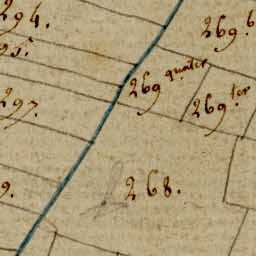 294.
269.b
295.
269 quater
269 ter
297.
268.
9.